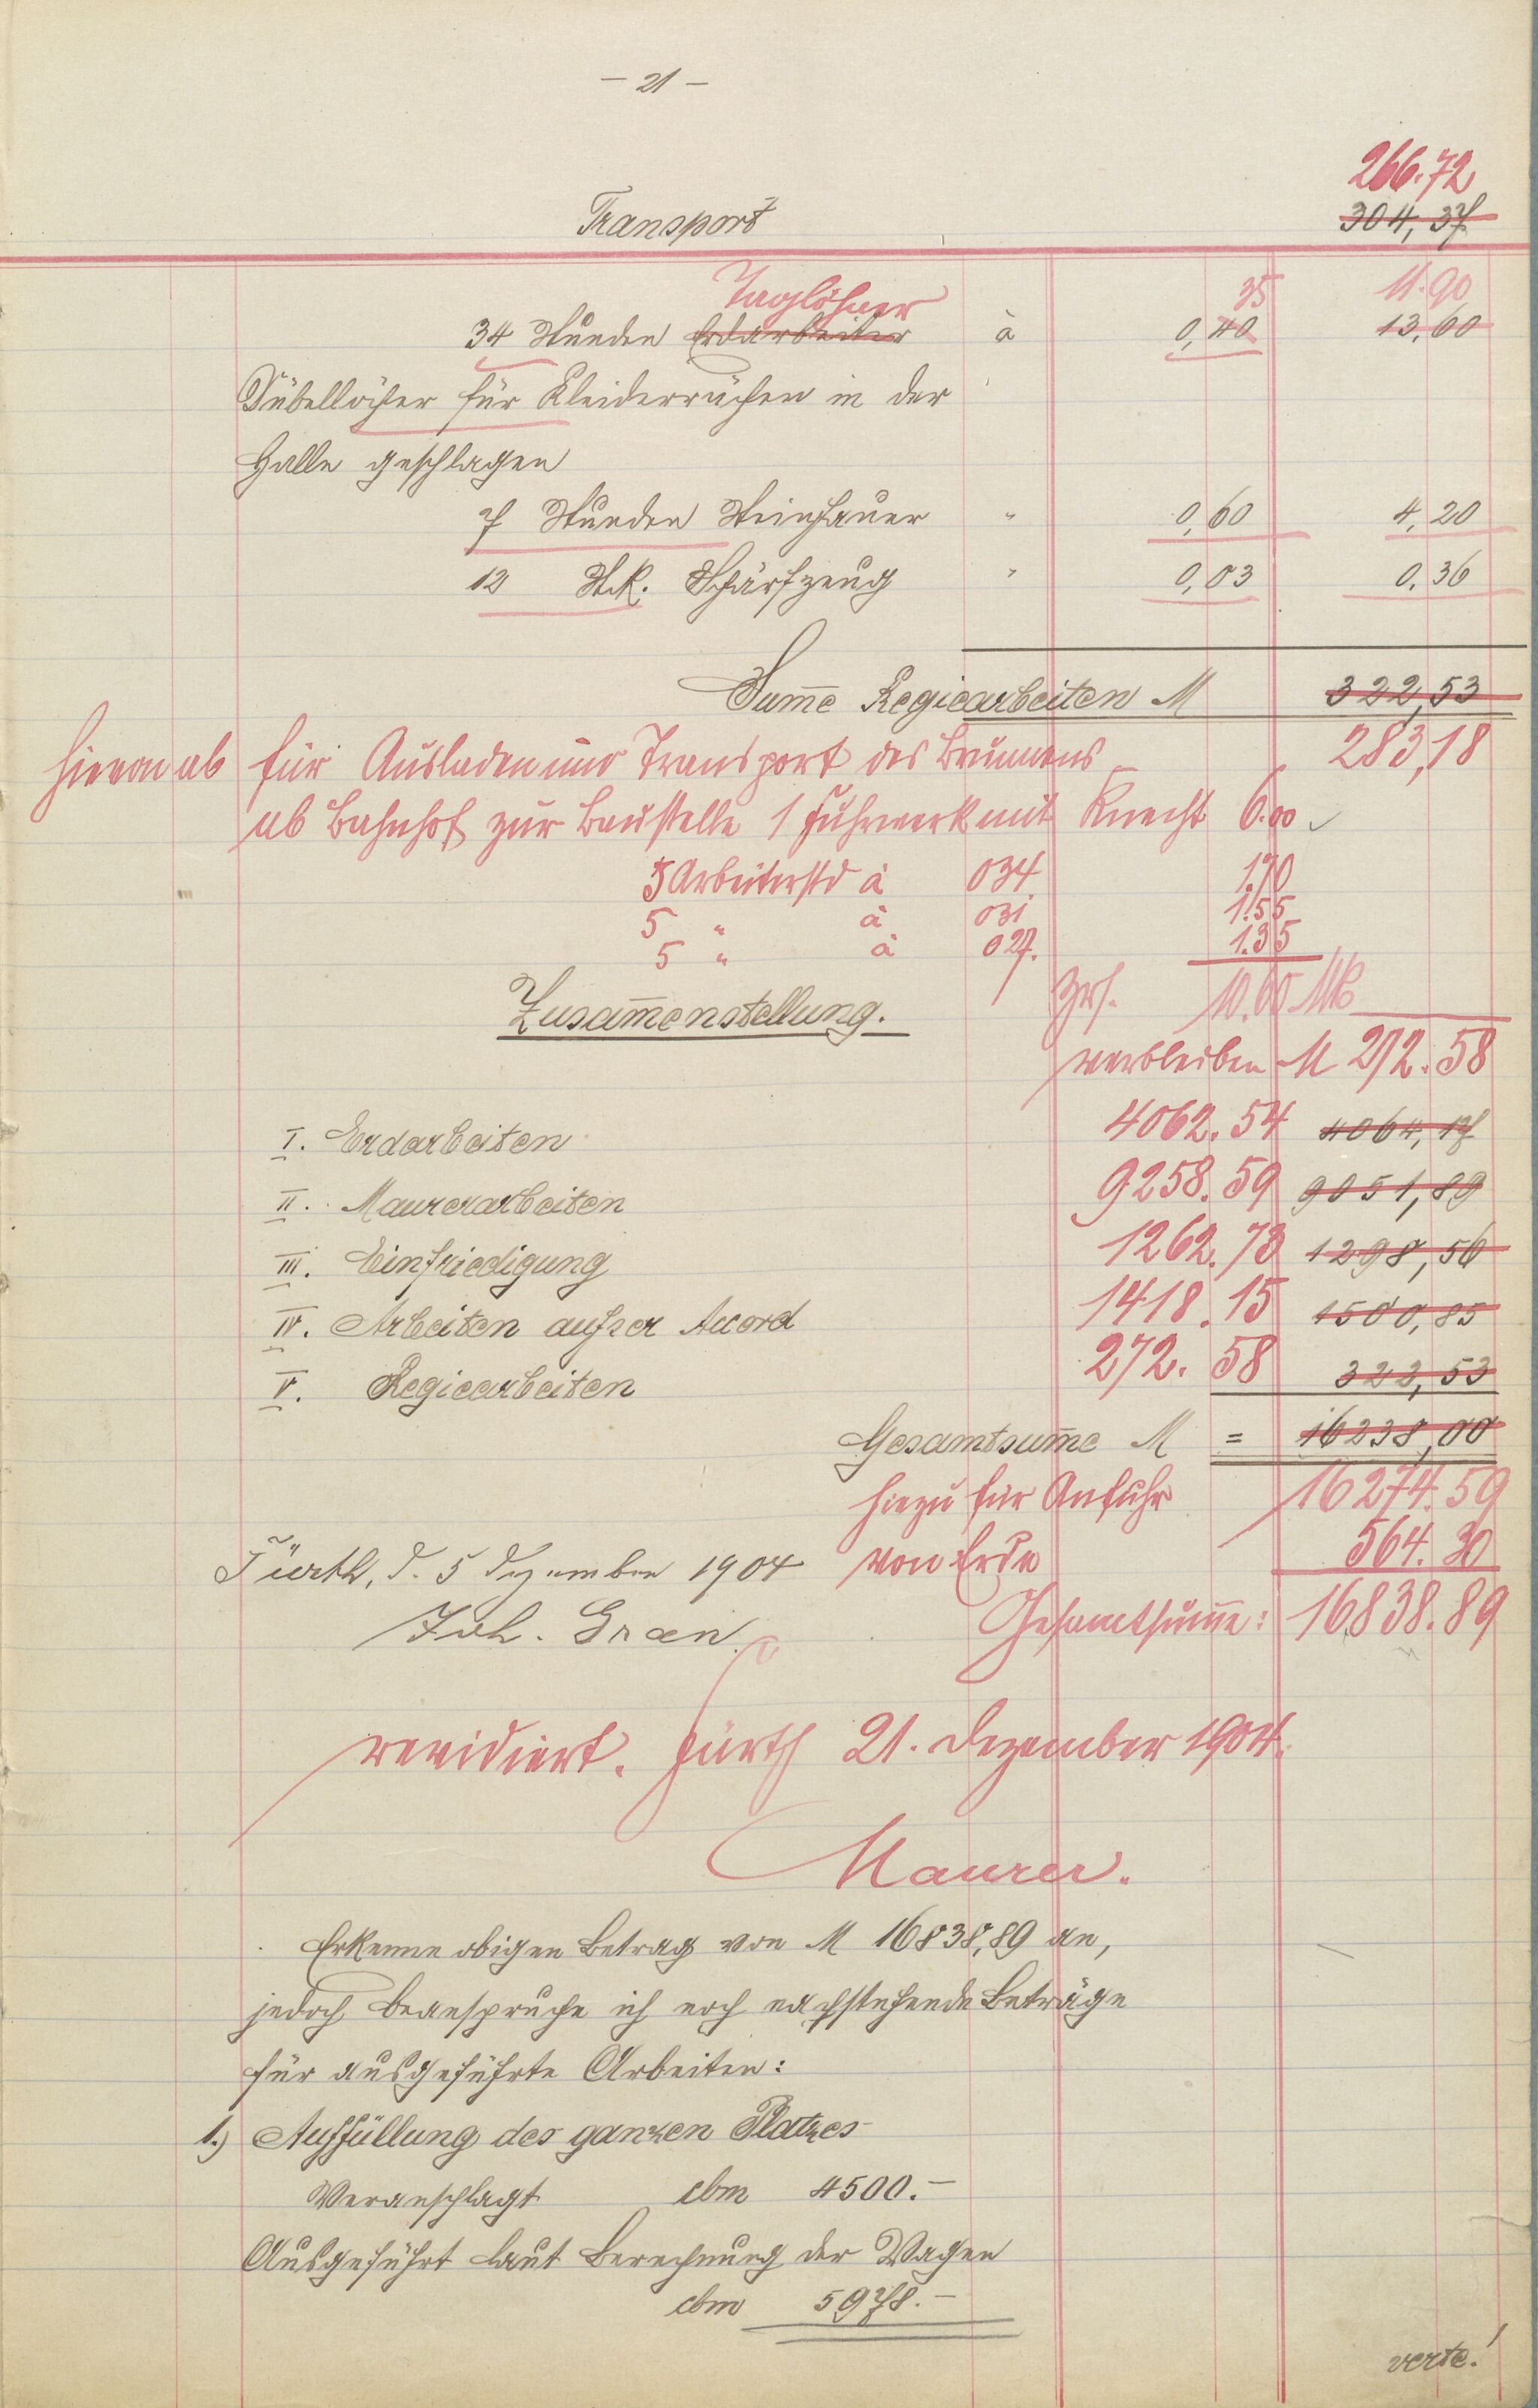 - 21 -
266.72
Transport 304,37
Taglöhner 35 11.90
34 Stunden Erdarbeiter à 0,40 13,60
Dübellöcher für Kleiderrächen in der
Halle geschlagen
7 Stunden Steinhauer " 0,60 4,20
12 Stk. Schärfzeug " 0,03 0,36
Sum̅e Regiearbeiten M 322,53
hievon ab für Ausladen und Transport des Brunnens 283,18
ab Bahnhof zur Baustelle 1 Fuhrwerk mit Knecht 6.00
5 Arbeiterstd à 034 1.70
5 " à 031 1.55
5 " à 027. 1.35
Zus. 10.60 Mk
Zusam̅enstellung.
verbleiben M 272.58
I. Erdarbeiten 4062.54 4064,17
II. Maurerarbeiten 9258.59 9051,89
III. Einfriedigung 1262.73 1298,56
IV. Arbeiten außer Accord 1418.15 1500,85
V. Regiearbeiten 272.58 322,53
Gesamtsum̅e M = 16238,00
hiezu für Anfuhr 16274.59
von Erde 564.30
Fürth, d. 5 Dezember 1904
Gesamtsum̅e: 16838.89
Joh. Gran
revidiert. Fürth 21. Dezember 1904.
Maurer.
Erkenne obigen Betrag von M 16838,89 an,
jedoch beanspruche ich noch nachstehende Beträge
für ausgeführte Arbeiten:
1.) Auffüllung des ganzen Platzes
Veranschlagt cbm 4500.-
Ausgeführt laut Berechnung der Wagen
cbm 5978.-
verte!